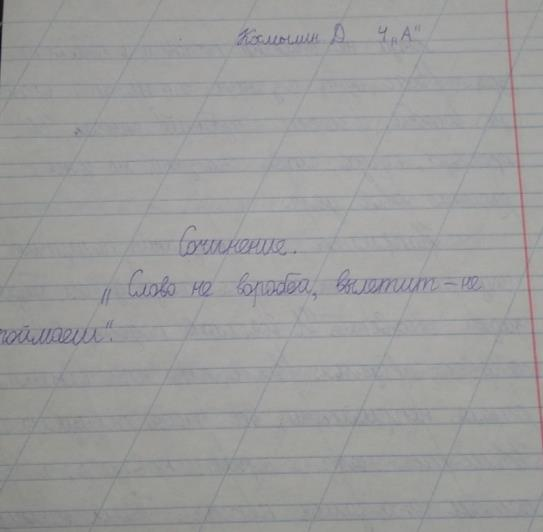 Космынин Д. 4 „А"
Сочинение.
„ Слово не воробба, вылетит – не
поймаеш".